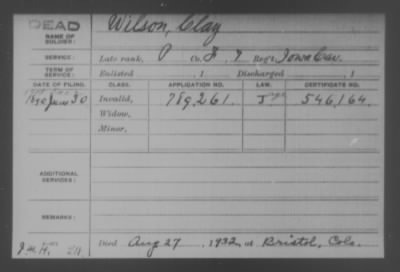 DEAD
NAME OF SOLDIER: Wilson, Clay
SERVICE: Late rank, P Co. F, 7 Reg't, Iowa Cav.
TERM OF SERVICE: Enlisted , 1 Discharged , 1
DATE OF FILING. CLASS. APPLICATION NO. LAW. CERTIFICATE NO.
1890 June 30 Invalid, 789,261. 546,164.
Widow,
Minor,
ADDITIONAL SERVICES:
REMARKS:
Died Aug 27, 1932, at Bristol, Colo.